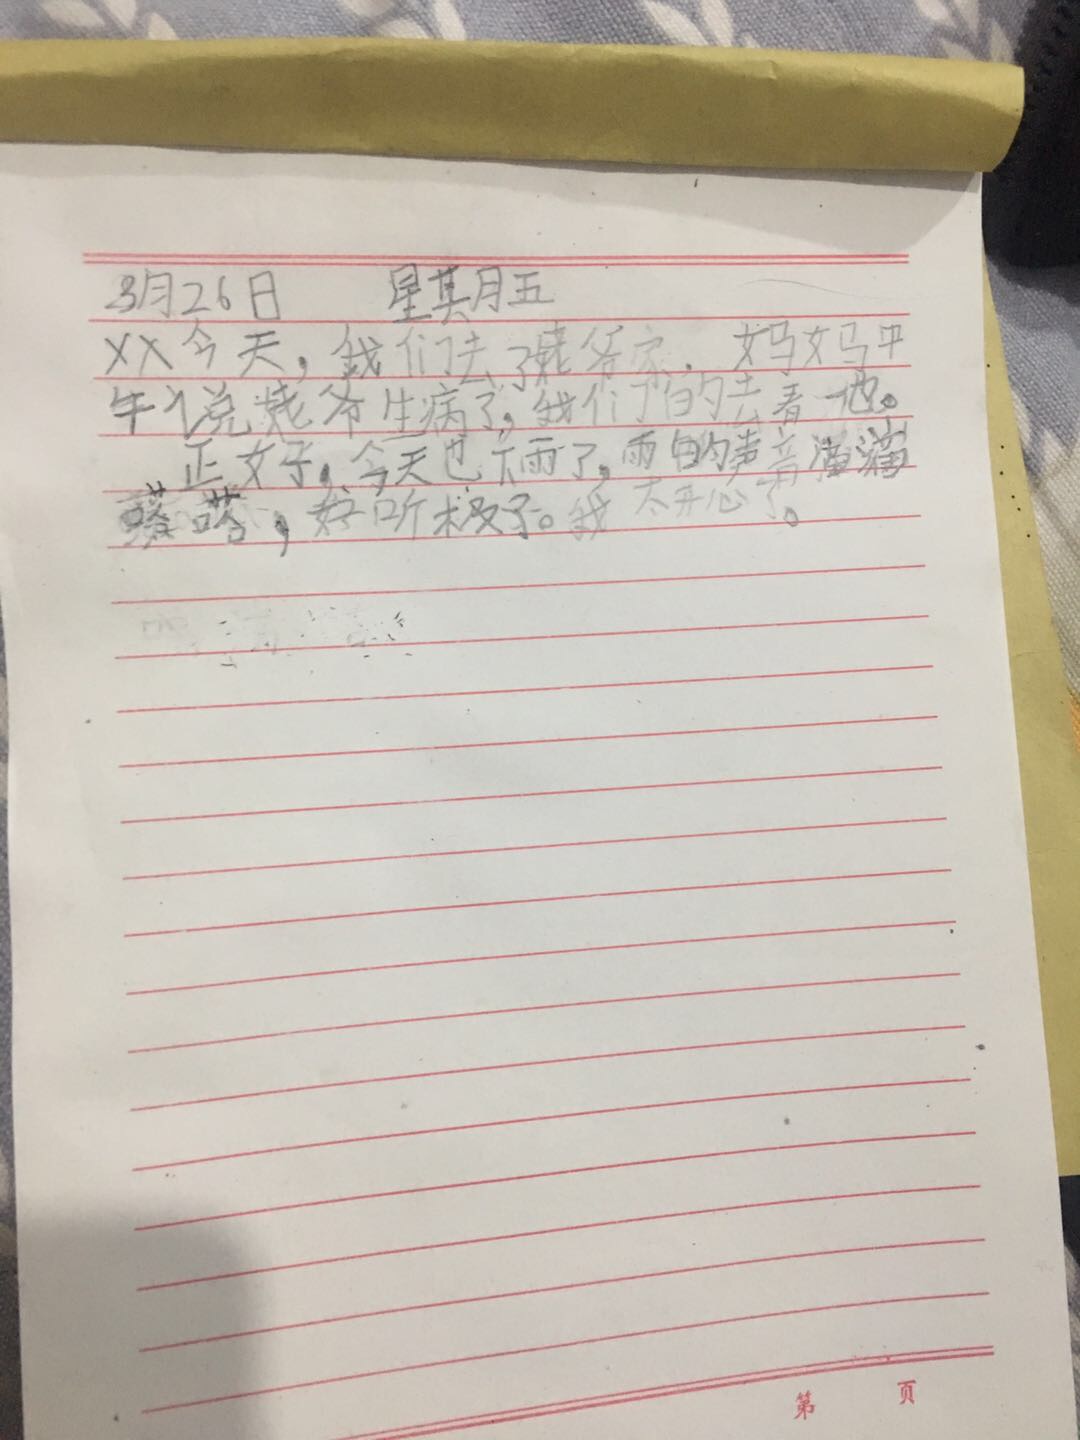 3月26日 星期五
XX今天,我们去了姥爷家,妈妈中
午说姥爷生病了,我们的去看他。
正好,今天也下雨了,雨的声音滴滴
嗒嗒,好听极了。我太开心了。
第 页